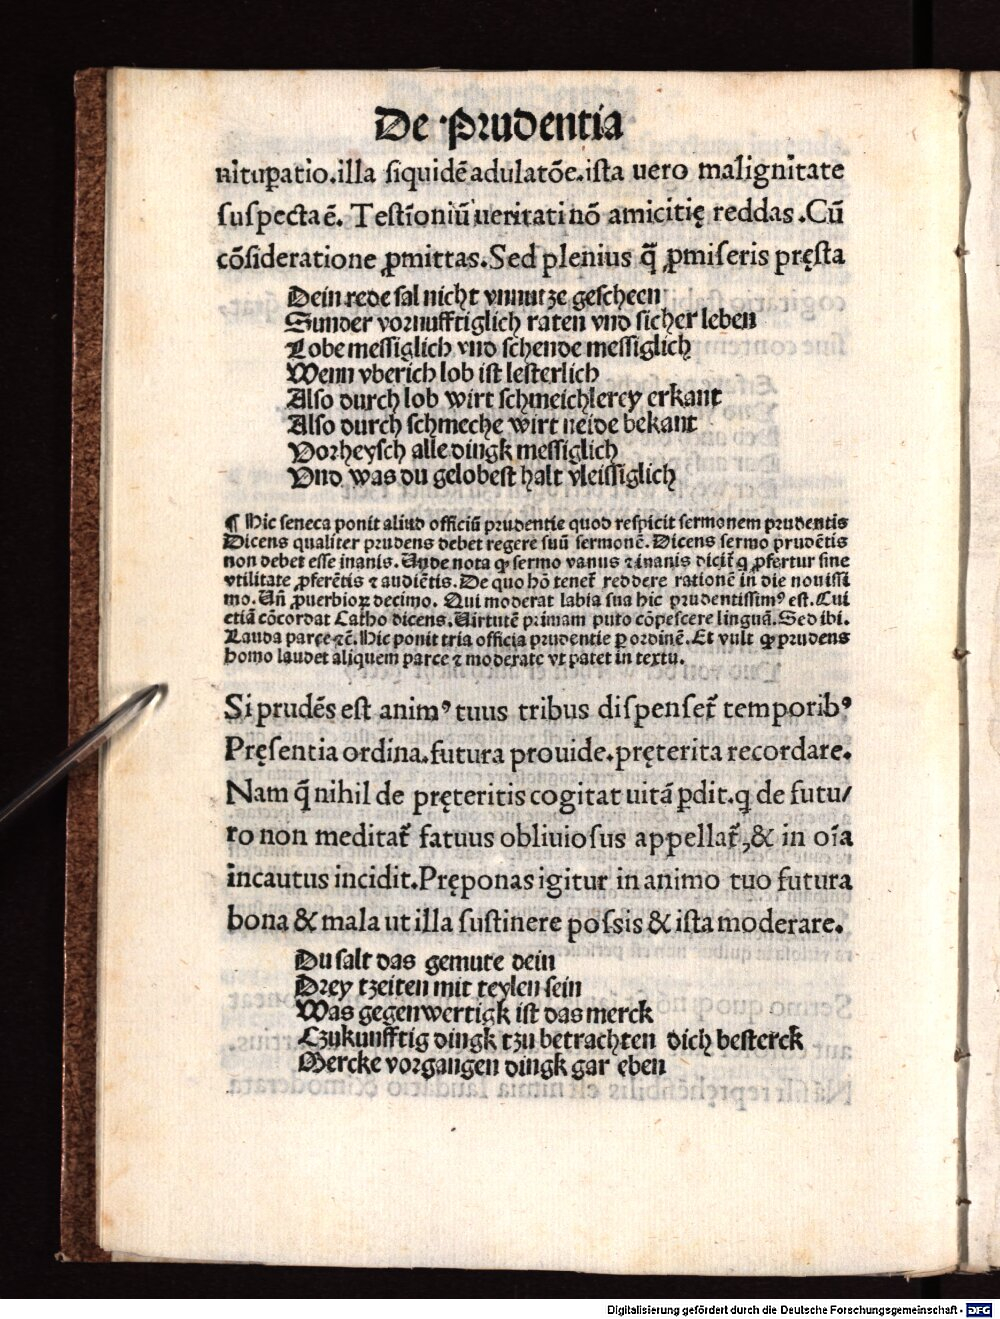 De Prudentia
uitupatio.illa siquidē adulatōe.ista uero malignitate
suspecta ē. Testīoniū ueritati nō amicitię reddas .Cū
cōsideratione ꝓmittas.Sed plenius q̄ ꝓmiseris pręsta
Dein rede sal nicht vnnutze gescheen
Sunder vornufftiglich raten vnd sicher leben
Lobe messiglich vnd schende messiglich
Wenn vberich lob ist lesterlich
Also durch lob wirt schmeichlerey erkant
Also durch schmeche wirt neide bekant
Vorheysch alle dingk messiglich
Vnd was du gelobest halt vleissiglich
¶ Hic seneca ponit aliud officiū prudentie quod respicit sermonem prudentis
Dicens qualiter prudens debet regere suū sermonē. Dicens sermo prudētis
non debet esse inanis. Unde nota ꝙ sermo vanus ⁊ inanis dicit᷑ q ꝓfertur sine
vtilitate ꝓferētis ⁊ audiētis. De quo hō tenet᷑ reddere rationē in die nouissi
mo. Uñ ꝓuerbioꝝ decimo. Qui moderat labia sua hic prudentissimꝰ est. Cui
etiā cōcordat Catho dicens. Uirtutē primam puto cōpescere linguā. Sed ibi.
Lauda parce ⁊ē. Hic ponit tria officia prudentie ꝑ ordinē. Et vult ꝙ prudens
homo laudet aliquem parce ⁊ moderate vt patet in textu.
Si prudēs est animꝰ tuus tribus dispenset᷑ temporibꝰ
Pręsentia ordina.futura prouide.pręterita recordare.
Nam q̄ nihil de pręteritis cogitat uitā ꝑdit.q de futu/
ro non meditat᷑ fatuus obliuiosus appellat᷑,& in oīa
incautus incidit.Pręponas igitur in animo tuo futura
bona & mala ut illa sustinere possis & ista moderare.
Du salt das gemute dein
Drey tzeiten mit teylen sein
Was gegenwertigk ist das merck
Czukunfftig dingk tzu betrachten dich besterck
Mercke vorgangen dingk gar eben
Digitalisierung gefördert durch die Deutsche Forschungsgemeinschaft - DFG